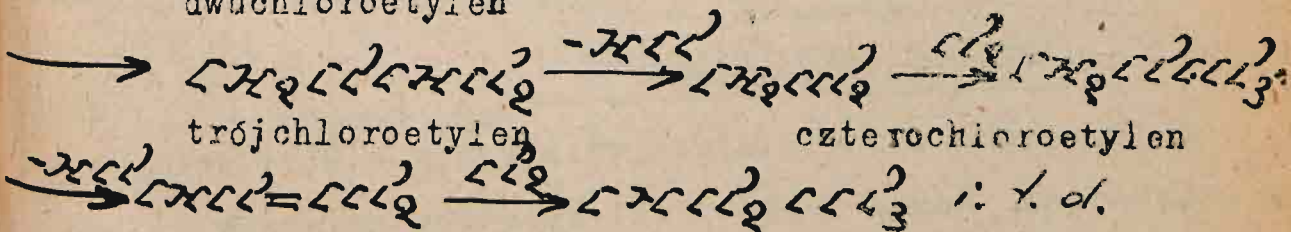 dwuchloroetylen
→ CH₂ClCHCl₂ -HCl→ CH₂CCl₂ Cl₂→ CH₂Cl.CCl₃
trójchloroetylen czterochloroetylen
-HCl→ CHCl=CCl₂ Cl₂→ CHCl₂CCl₃ i. t. d.